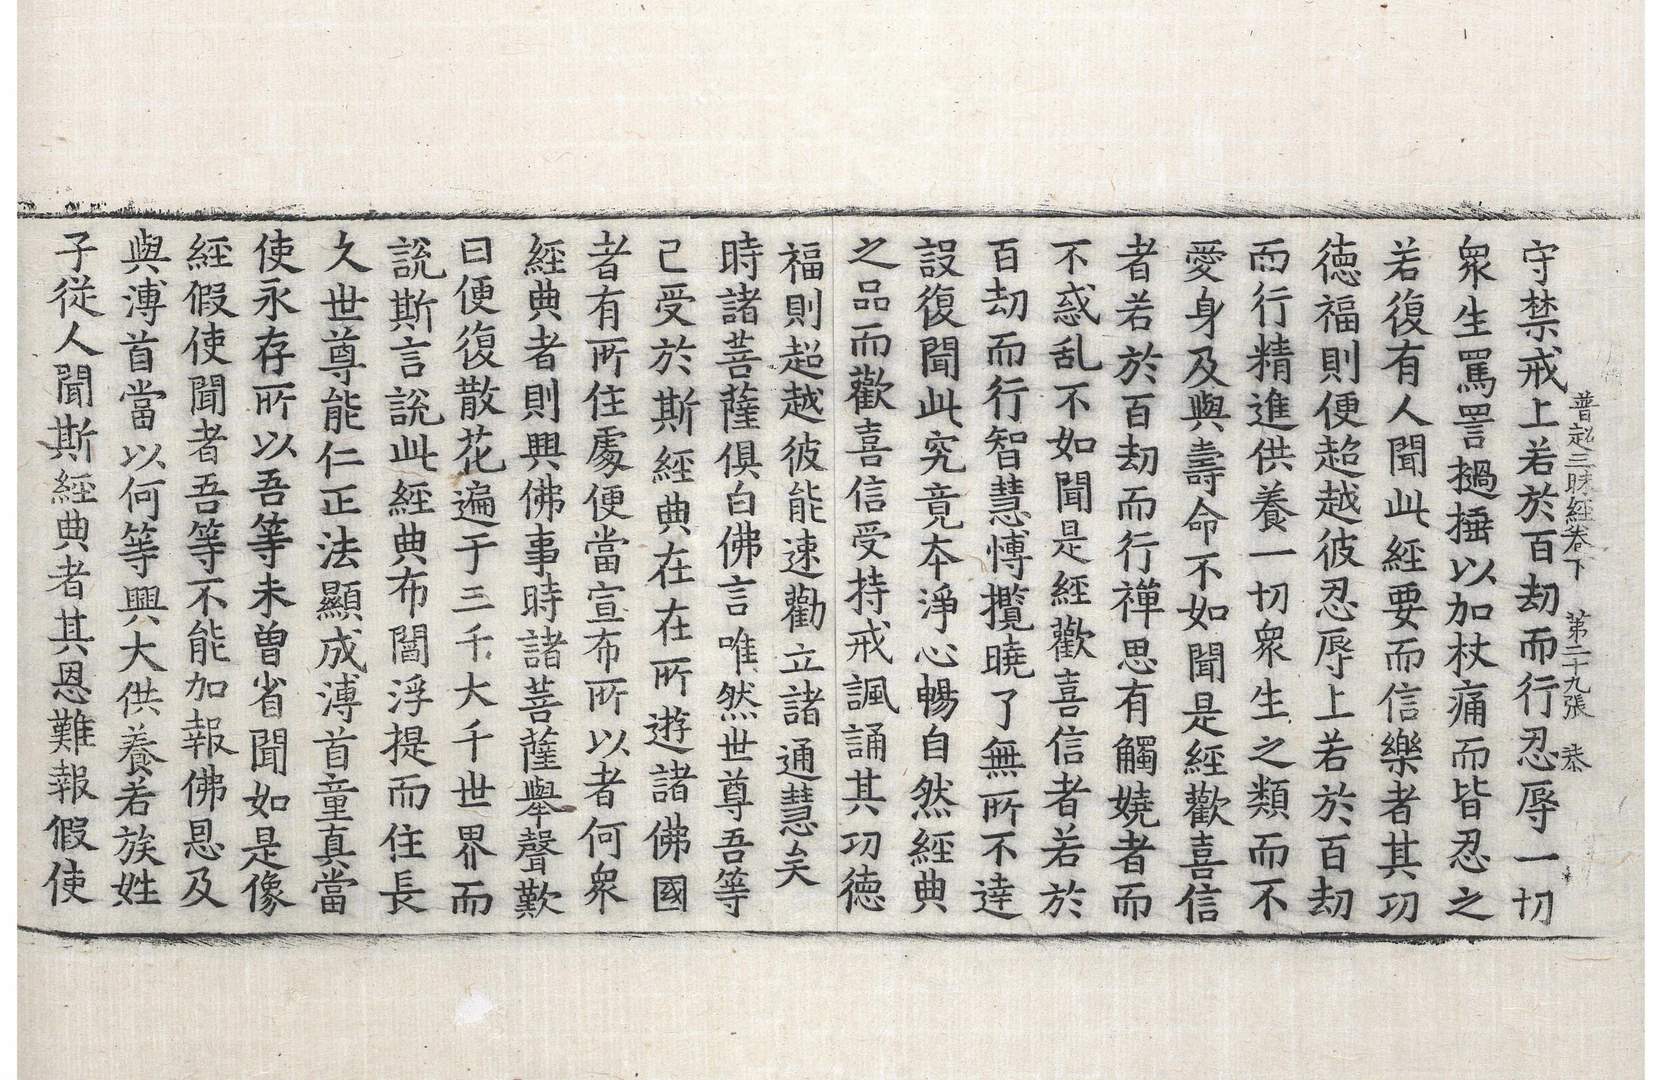 普超三昧經卷下　第二十九張　恭
守禁戒上若於百劫而行忍辱一切
衆生罵詈撾捶以加杖痛而皆忍之
若復有人聞此經要而信樂者其功
徳福則便超越彼忍辱上若於百劫
而行精進供養一切衆生之類而不
愛身及與壽命不如聞是經歡喜信
者若於百劫而行禪思有觸嬈者而
不惑乱不如聞是經歡喜信者若於
百劫而行智慧愽攬曉了無所不達
設復聞此究竟本淨心暢自然經典
之品而歡喜信受持戒諷誦其功徳
福則超越彼能速勸立諸通慧矣
時諸菩薩俱白佛言唯然世尊吾等
已受於斯經典在在所遊諸佛國
者有所住處便當宣布所以者何衆
經典者則興佛事時諸菩薩舉聲歎
曰便復散花遍于三千大千世界而
説斯言説此經典布閻浮提而住長
久世尊能仁正法顯成溥首童真當
使永存所以吾等未曽省聞如是像
經假使聞者吾等不能加報佛恩及
與溥首當以何等興大供養若族姓
子從人聞斯經典者其恩難報假使